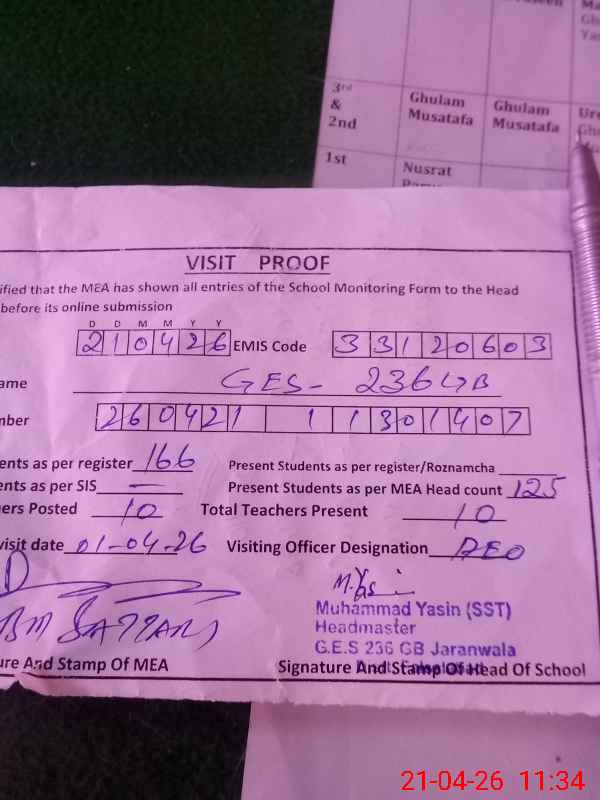 Ma
3rd
&
2nd
Ghulam
Musatafa
Ghulam
Musatafa
1st
Nusrat
VISIT PROOF
ified that the MEA has shown all entries of the School Monitoring Form to the Head
before its online submission
D D M M Y Y
210426 EMIS Code 33120603
ame GES- 236 GB
mber 260421 1 1301407
ents as per register 166 Present Students as per register/Roznamcha
ents as per SIS — Present Students as per MEA Head count 125
ers Posted 10 Total Teachers Present 10
visit date 01-04-26 Visiting Officer Designation DEO
Muhammad Yasin (SST)
Headmaster
G.E.S 236 GB Jaranwala
ure And Stamp Of MEA Signature And Stamp Of Head Of School
21-04-26 11:34